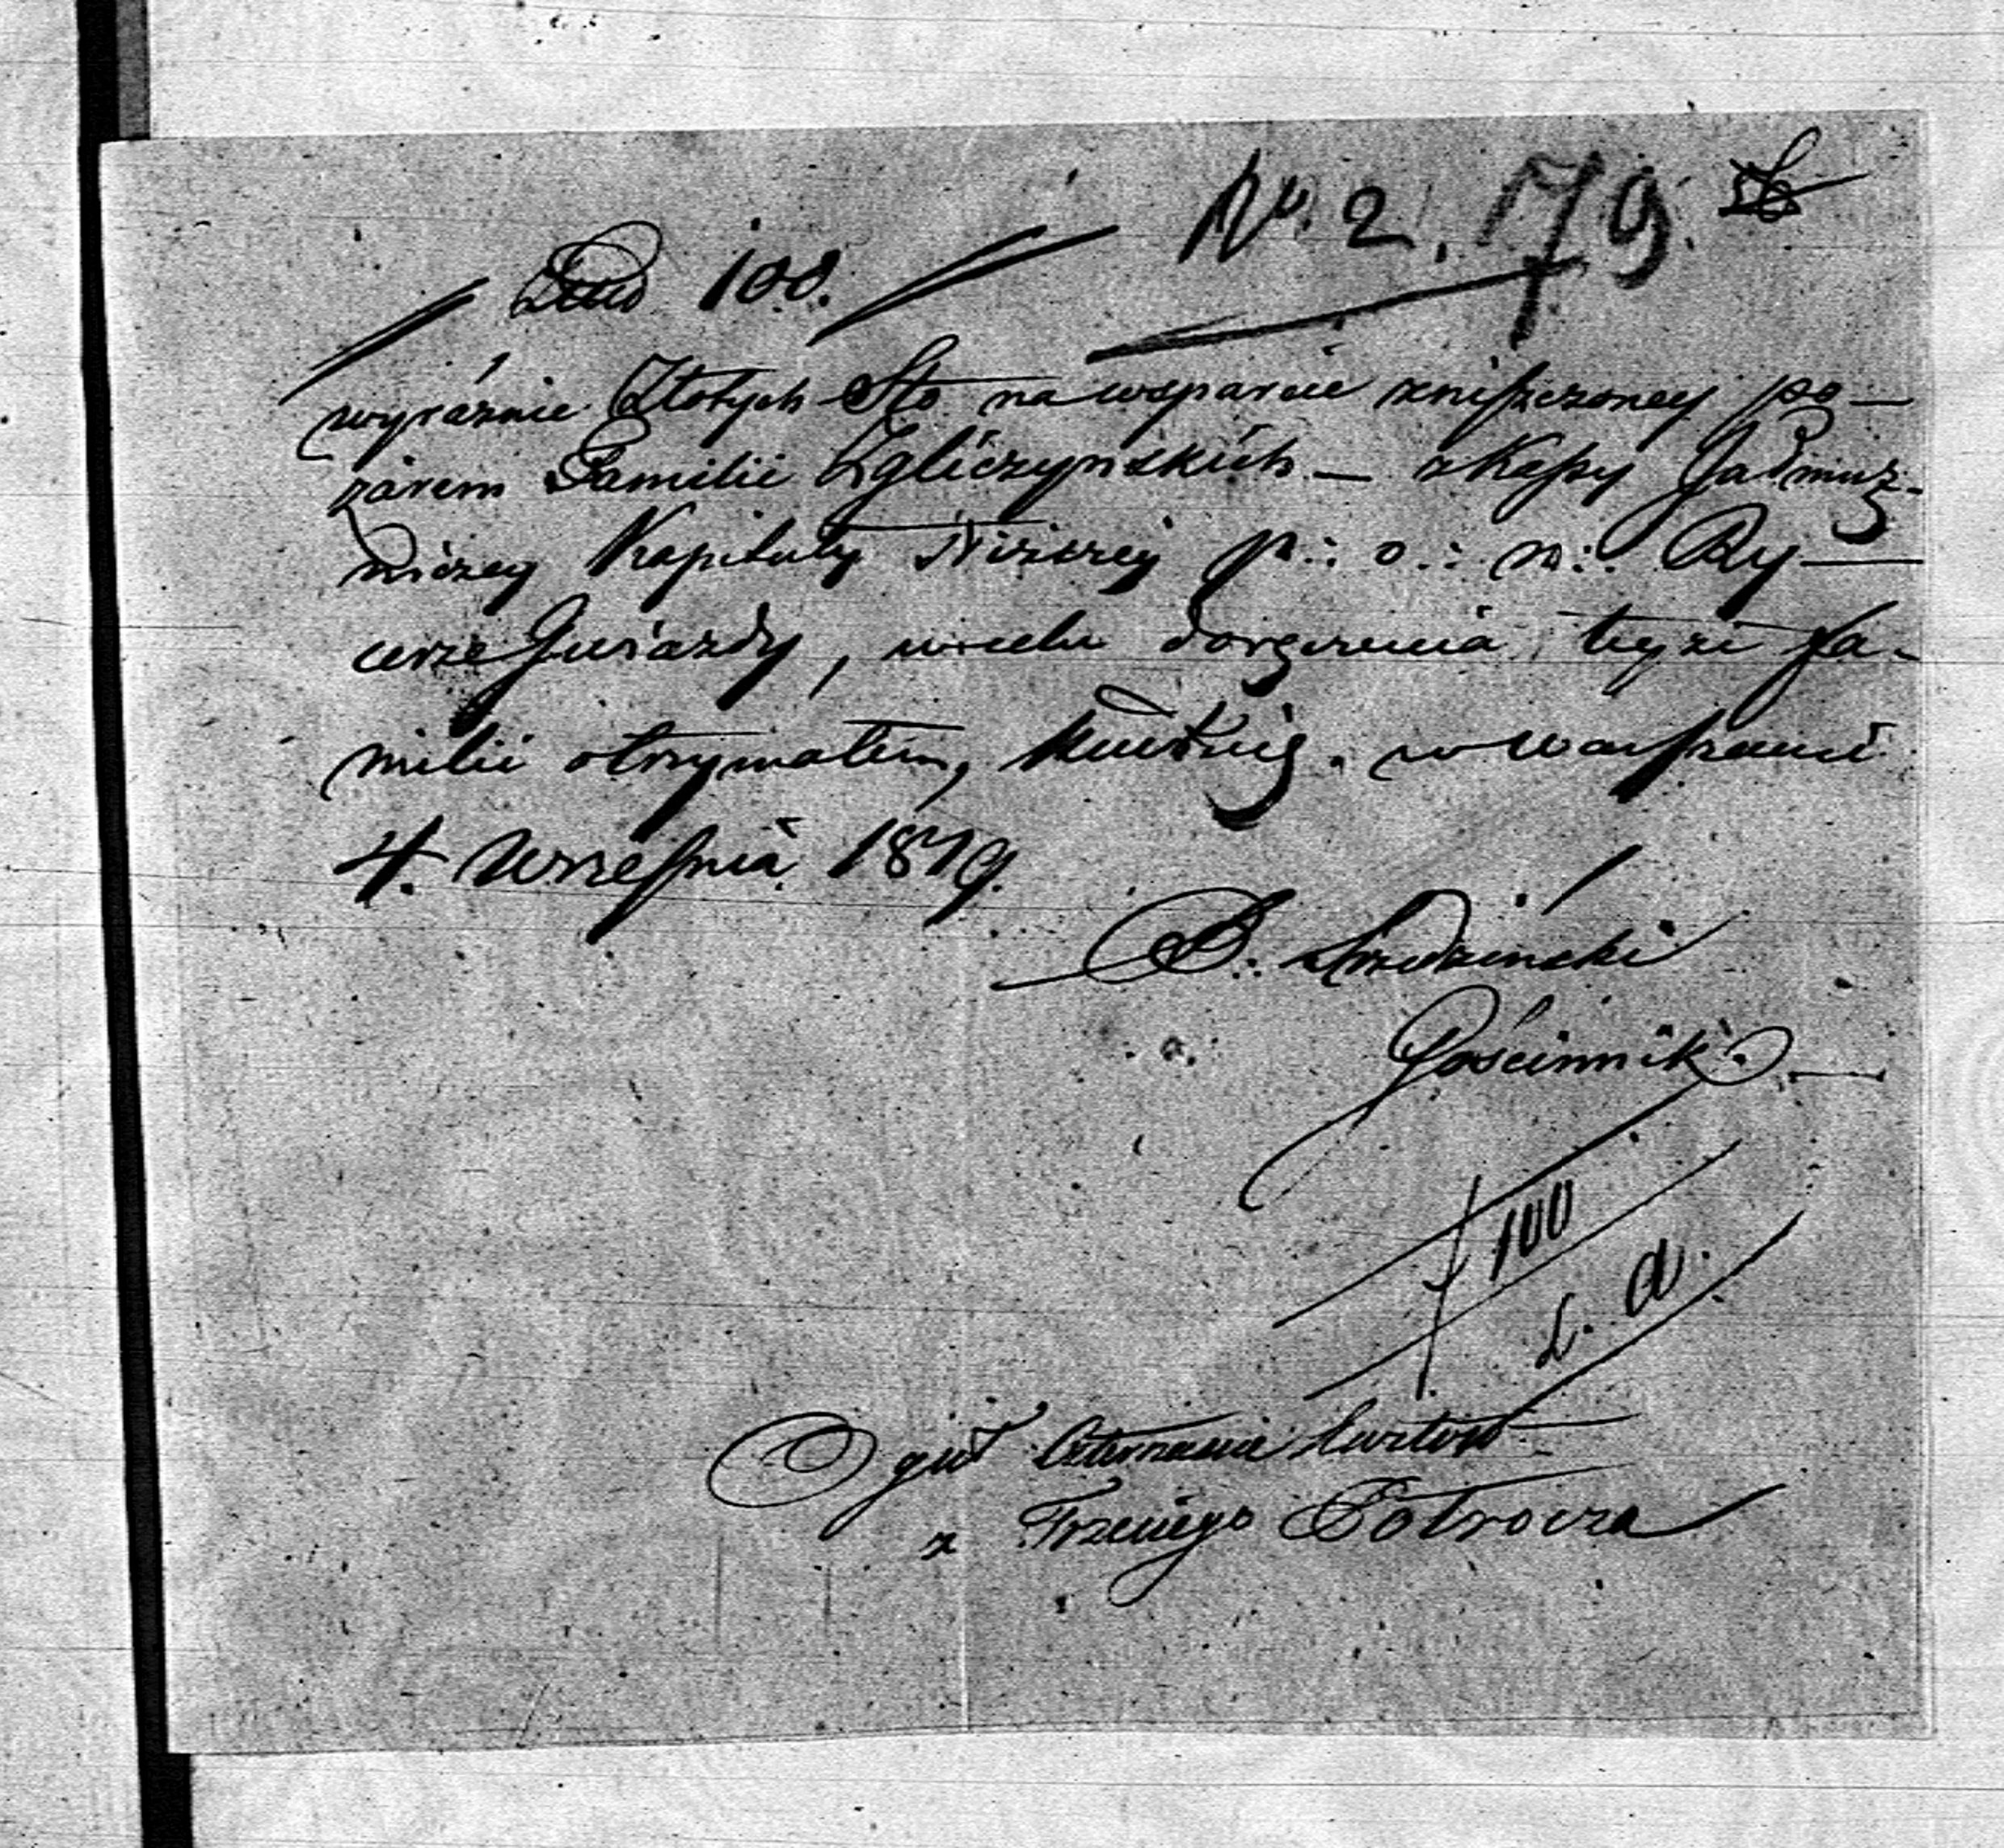 No. 2. 79.
100.
wyraźnie Złotych Sto na wsparcie zniszczoney po-
żarem Familii Zgliczyńskich — z Kassy Jałmuż-
niczey Kapituły Niższej p: o: n: Ry-
cerze Gwiazdy, w celu doręczenia teyże fa-
milii otrzymałem, kwituję. w Warszawie
4. Września 1819.
B:
Gościnnik.
f 100
L. a.
z Trzeciego Potrocza